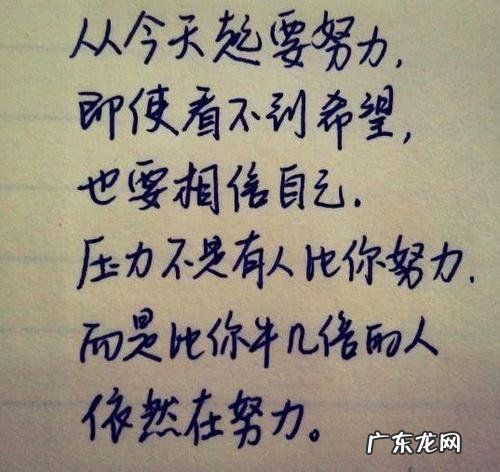 从今天起要努力,
即使看不到希望,
也要相信自己.
压力不是有人比你努力.
而是比你牛几倍的人
依然在努力。
广东龙网